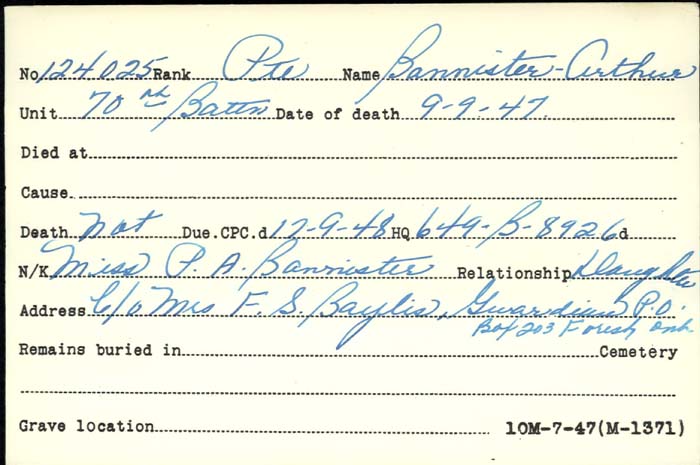 No. 124025 Rank Pte Name Bannister-Arthur
Unit 70th Battn Date of death 9-9-47.
Died at
Cause
Death Not Due. CPC.d 17-9-48 HQ 649-B-8926d
N/K Miss P. A. Bannister Relationship Daughter
Address c/o Mrs F. S. Baylis, Guardian P.O.
Box 203 Forest Ont.
Remains buried in Cemetery
Grave location 10M-7-47(M-1371)